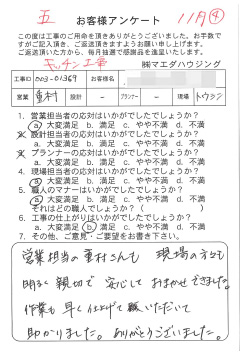 五 お客様アンケート 11月④
この度は工事のご用命を頂きありがとうございました。お手数で
すがご記入頂き、ご返送頂きますようお願い申し上げます。
ご返送頂いた方から、毎月抽選で感謝品を進呈致します。
キッチン工事 ㈱マエダハウジング
工事ID 003-01369 お客様名
営業 重村 設計 － プランナー － 現場 トウシン
1. 営業担当者の応対はいかがでしたでしょうか？
a. 大変満足 b. 満足 c. やや不満 d. 不満
2. 設計担当者の応対はいかがでしたでしょうか？
a. 大変満足 b. 満足 c. やや不満 d. 不満
3. プランナーの応対はいかがでしたでしょうか？
a. 大変満足 b. 満足 c. やや不満 d. 不満
4. 現場担当者の応対はいかがでしたでしょうか？
a. 大変満足 b. 満足 c. やや不満 d. 不満
5. 職人のマナーはいかがでしたでしょうか？
a. 大変満足 b. 満足 c. やや不満 d. 不満
それはどの職人でしょうか？（ ）
6. 工事の仕上がりはいかがでしたでしょうか？
a. 大変満足 b. 満足 c. やや不満 d. 不満
7. その他、ご意見・ご要望をお書き下さい。
営業担当の重村さんも 現場の方も
明るく親切で 安心して おまかせできました。
作業も 早く仕上げて 頂いて
助かりました。ありがとうございました。